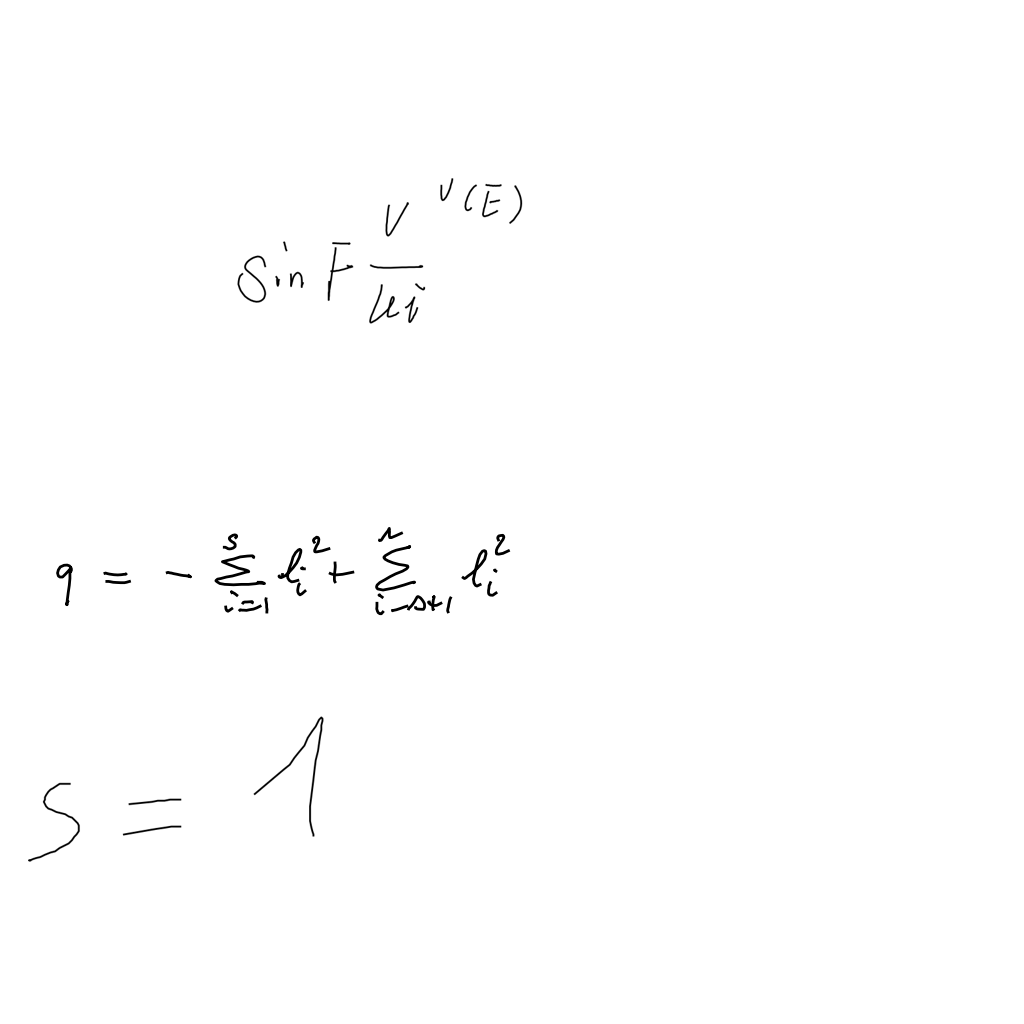 sin F \frac{V}{\mu i}^{v(E)}
q = - \sum_{i=1}^{s} l_i^2 + \sum_{i-s+1}^{r} l_i^2
S = 1